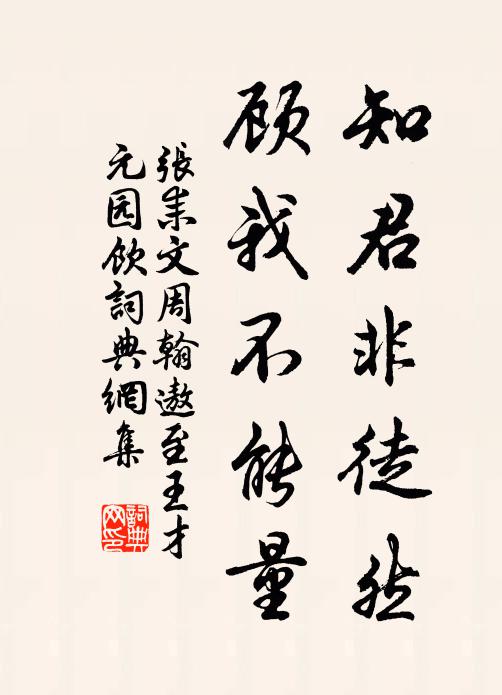 知君非徒然
顾我不能量
張耒文周翰邀至王才
元园飲詞典網集
詞典
网印